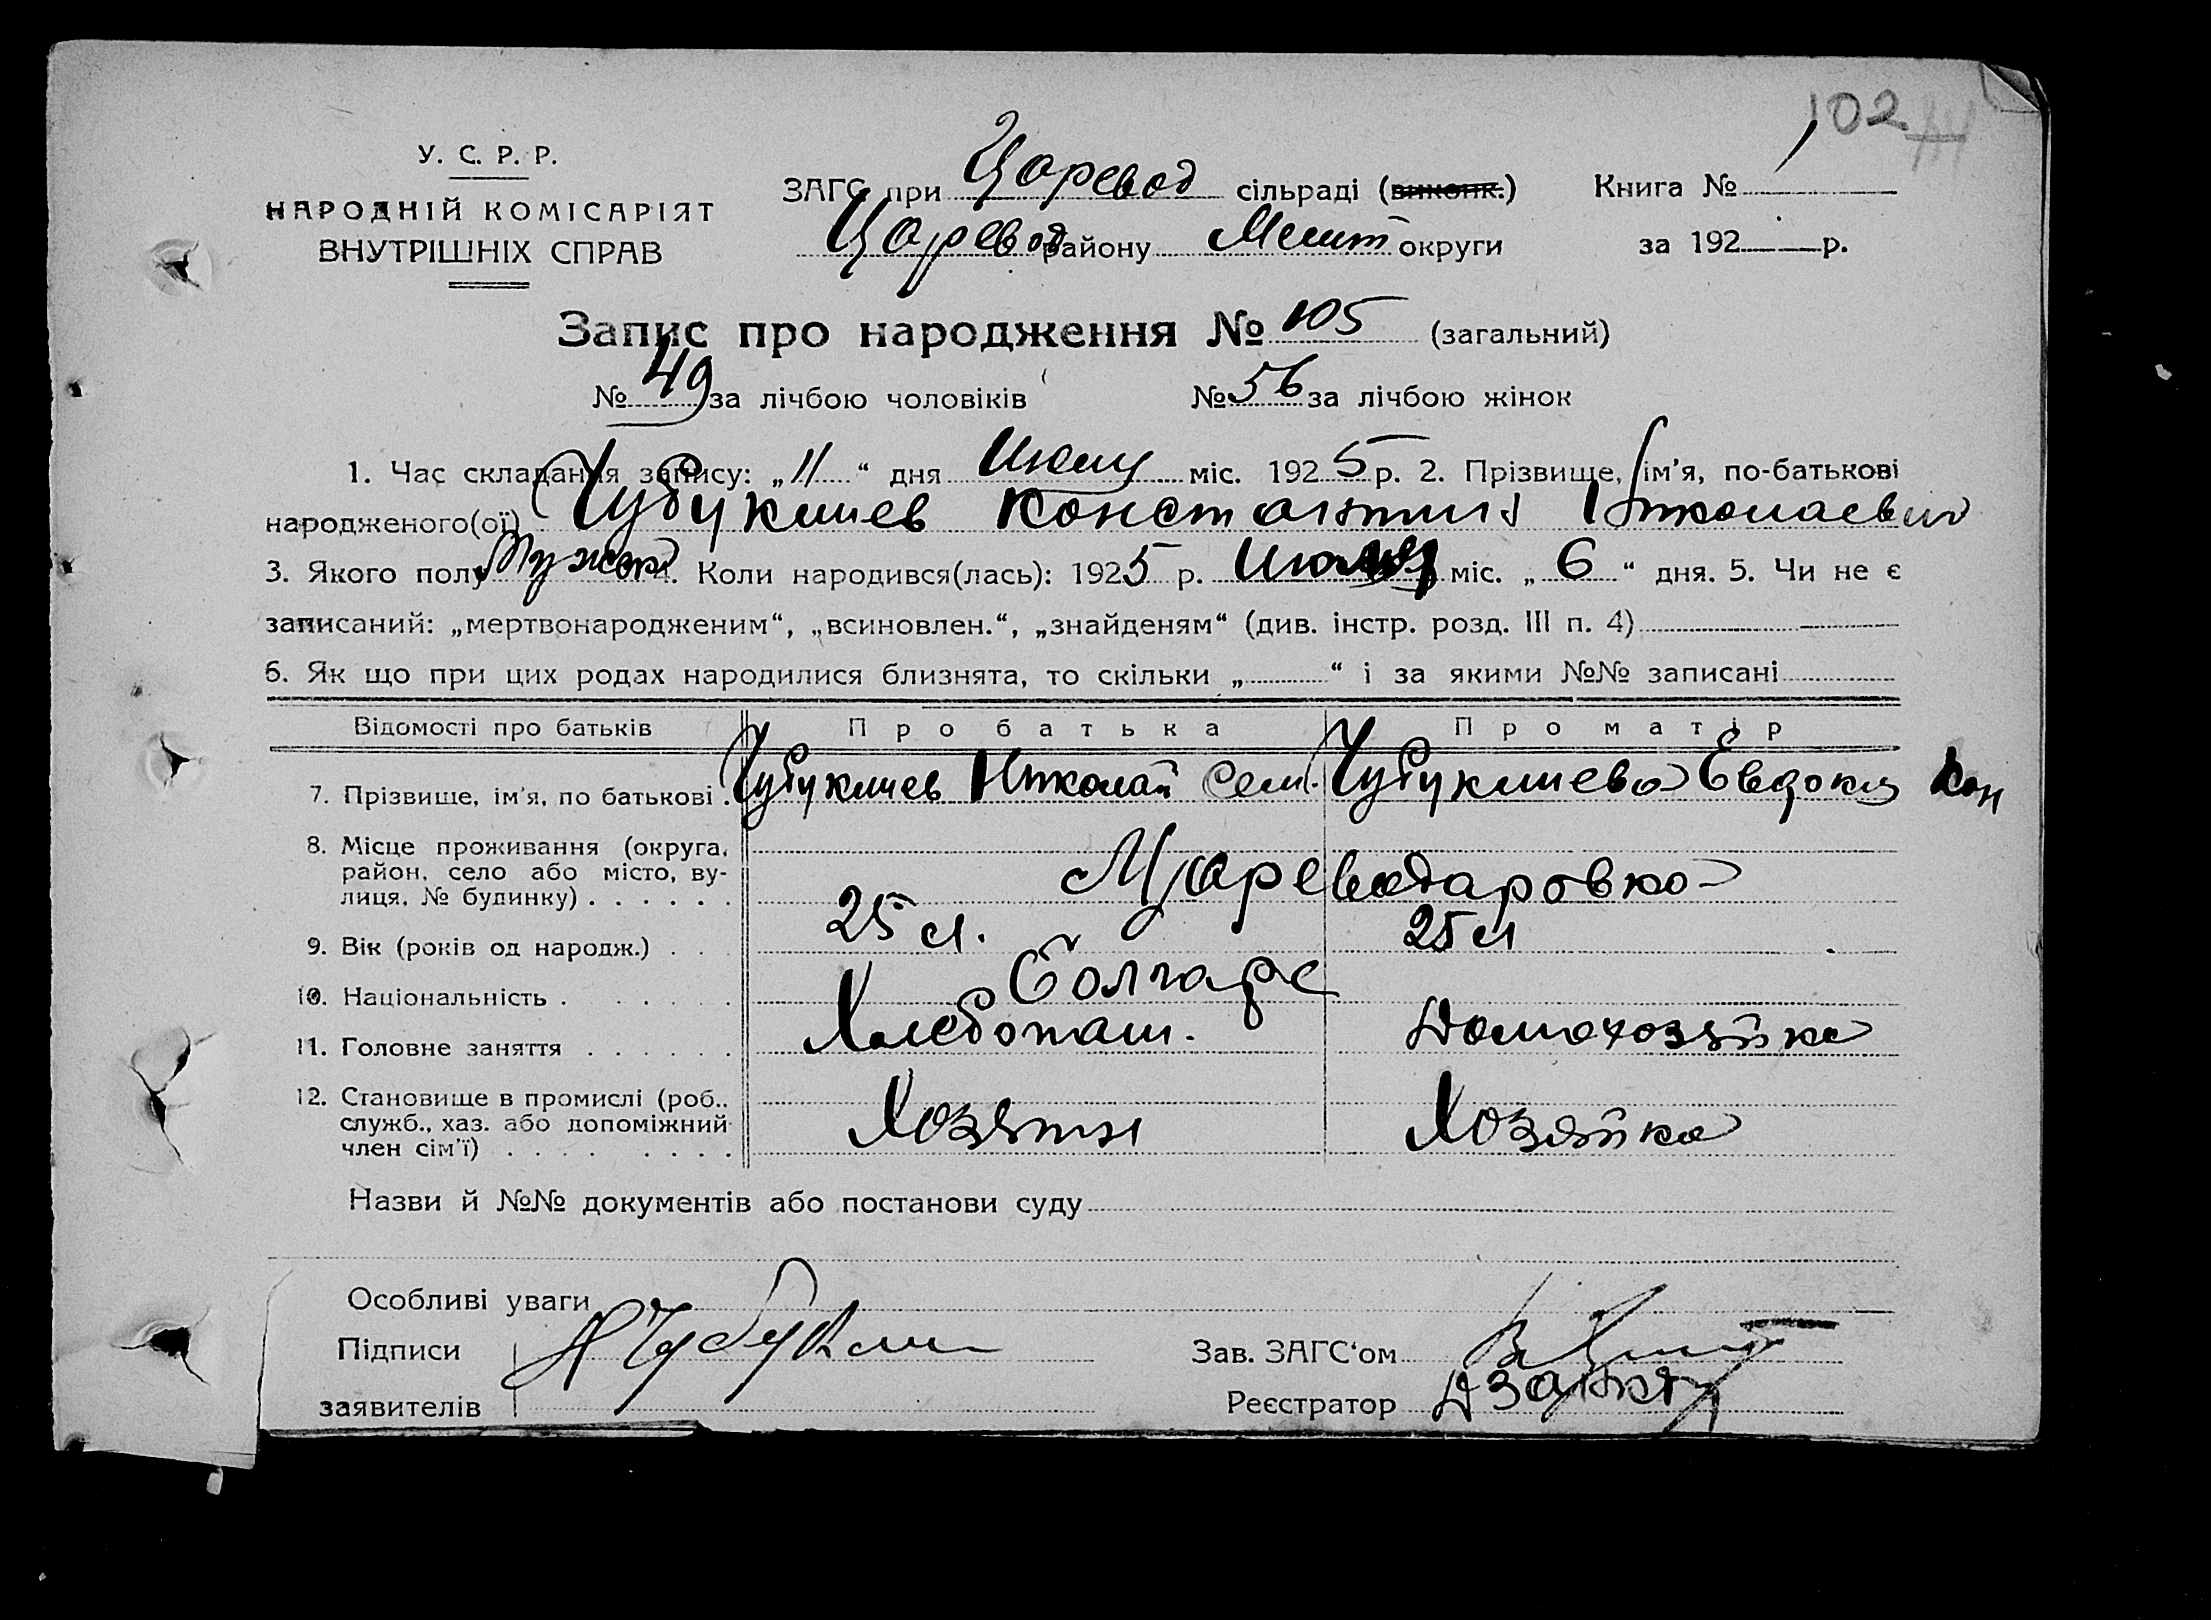 102
У. С. Р. Р.
НАРОДНІЙ КОМІСАРІЯТ
ВНУТРІШНІХ СПРАВ
ЗАГС при Царевод сільраді (виконк.) Книга № 1
Царевод району Мелит округи за 192 р.
Запис про народження № 105 (загальний)
№ 49 за лічбою чоловіків № 56 за лічбою жінок
1. Час складання запису: „11“ дня Июля міс. 1925 р. 2. Прізвище, ім’я, по-батькові
народженого(ої) Чубуклиев Константин Николаевич
3. Якого полу Мужск. Коли народився(лась): 1925 р. Июля міс. „6“ дня. 5. Чи не є
записаний: „мертвонародженим“, „всиновлен.“, „знайденям“ (див. інстр. розд. III п. 4)
6. Як що при цих родах народилися близнята, то скільки „ “ і за якими №№ записані
Відомості про батьків Про батька Про матір
7. Прізвище, ім’я, по батькові . Чубуклиев Николай Сем. Чубуклиева Евдокия Кон
8. Місце проживання (округа,
район, село або місто, ву-
лиця, № будинку) . . . . . . Цареводаровка
9. Вік (років од народж.) . . 25 л. 25 л
10. Національність . . . . . . Болгаре
11. Головне заняття . . . . . . Хлебопаш. Домохозяйка
12. Становище в промислі (роб.,
служб., хаз. або допоміжний
член сім’ї) . . . . . . . . Хозяин Хозяйка
Назви й №№ документів або постанови суду
Особливі уваги
Підписи Н Чубукли
заявителів
Зав. ЗАГС‘ом
Реєстратор